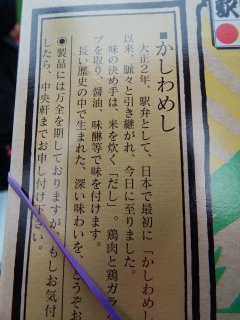 駅
■かしわめし
大正2年、駅弁として、日本で最初に「かしわめし
以来、脈々と引き継がれ、今日に至りました。
味の決め手は、米を炊く「だし」。鶏肉と鶏ガラ
プを取り、醤油、味醂等で味を付けます。
長い歴史の中で生まれた、深い味わいを、どうぞお
●製品には万全を期しておりますが、もしお気付
したら、中央軒までお申し付け下さい。